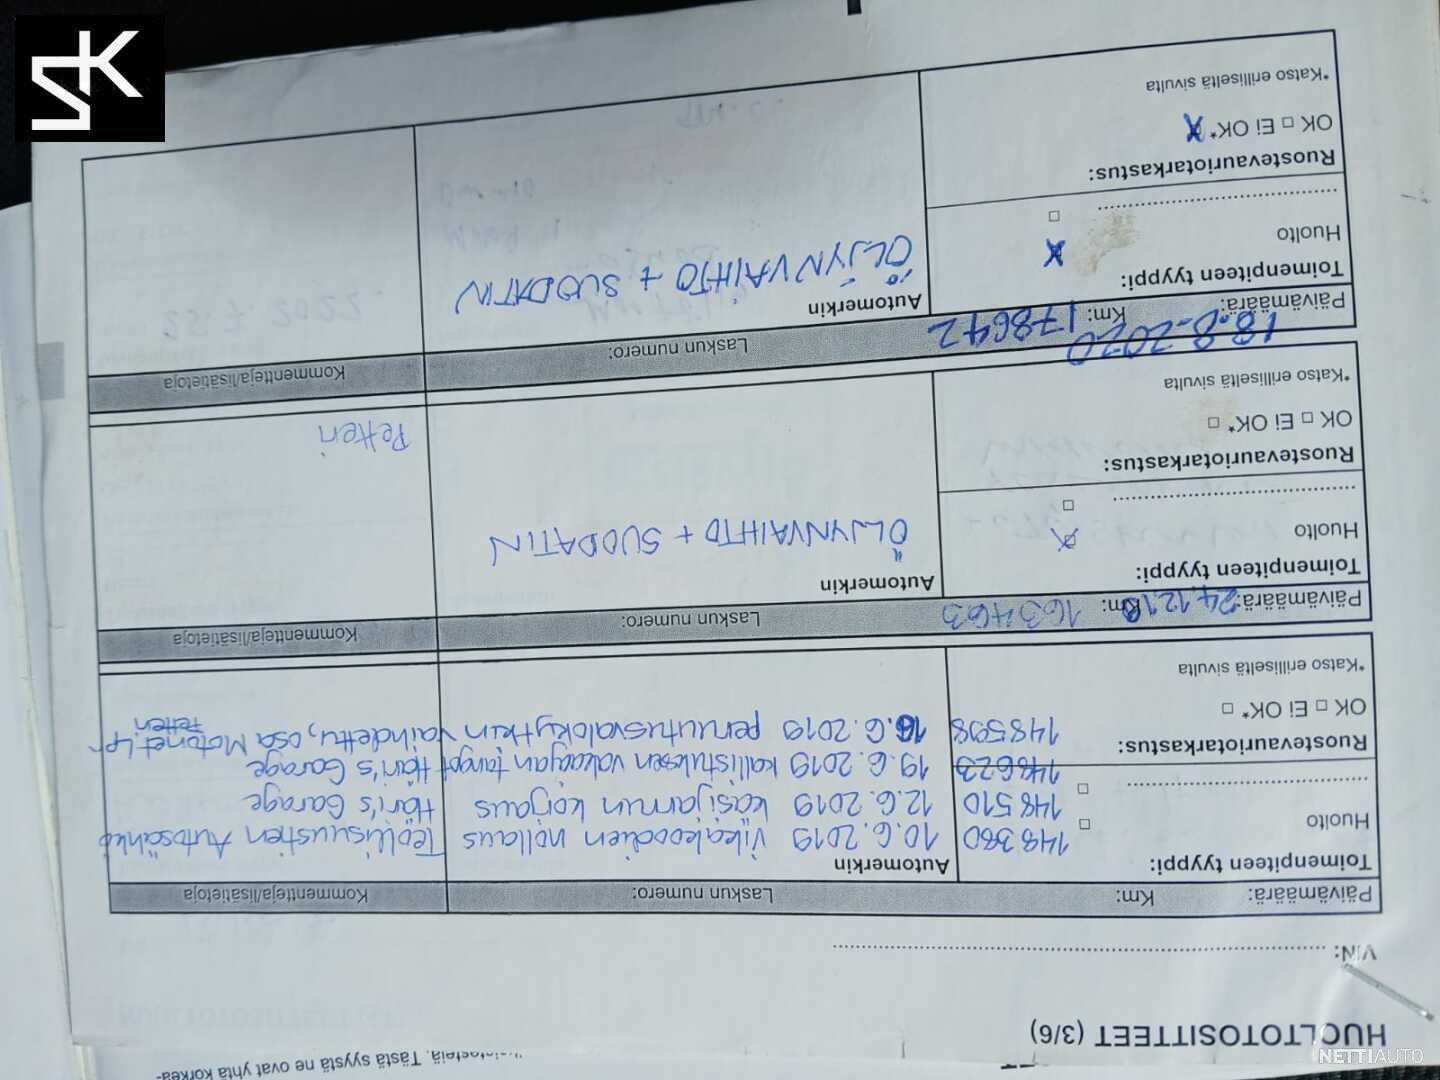 SK
HUOLTOTOSITTEET (3/6)
VIN:
Päivämäärä: Km: Laskun numero: Kommentteja/lisätietoja
Toimenpiteen tyyppi: Automerkin
Huolto
148380 10.6.2019 Vikakoodien nollaus Teollisuustien Autosähkö
148510 12.6.2019 käsijarrun korjaus Häri's Garage
148623 19.6.2019 kallistuksen vakaajan tangot Häri's Garage
148598 16.6.2019 peruutusvalokytkin vaihdettu, osa Motonet, Lpr
Petteri
Ruostevauriotarkastus:
OK □ Ei OK* □
*Katso erilliseltä sivulta
Päivämäärä: 24.12.19 Km: 163463 Laskun numero: Kommentteja/lisätietoja
Toimenpiteen tyyppi: Automerkin
Huolto X
ÖLJYNVAIHTO + SUODATIN
Ruostevauriotarkastus:
OK □ Ei OK* □
Petteri
*Katso erilliseltä sivulta
Päivämäärä: 18.8.2020 Km: 178642 Laskun numero: Kommentteja/lisätietoja
Toimenpiteen tyyppi: Automerkin
Huolto X
ÖLJYNVAIHTO + SUODATIN
Ruostevauriotarkastus:
OK □ Ei OK* X
*Katso erilliseltä sivulta
Tästä syystä ne ovat yhtä korkea-
NETTIAUTO